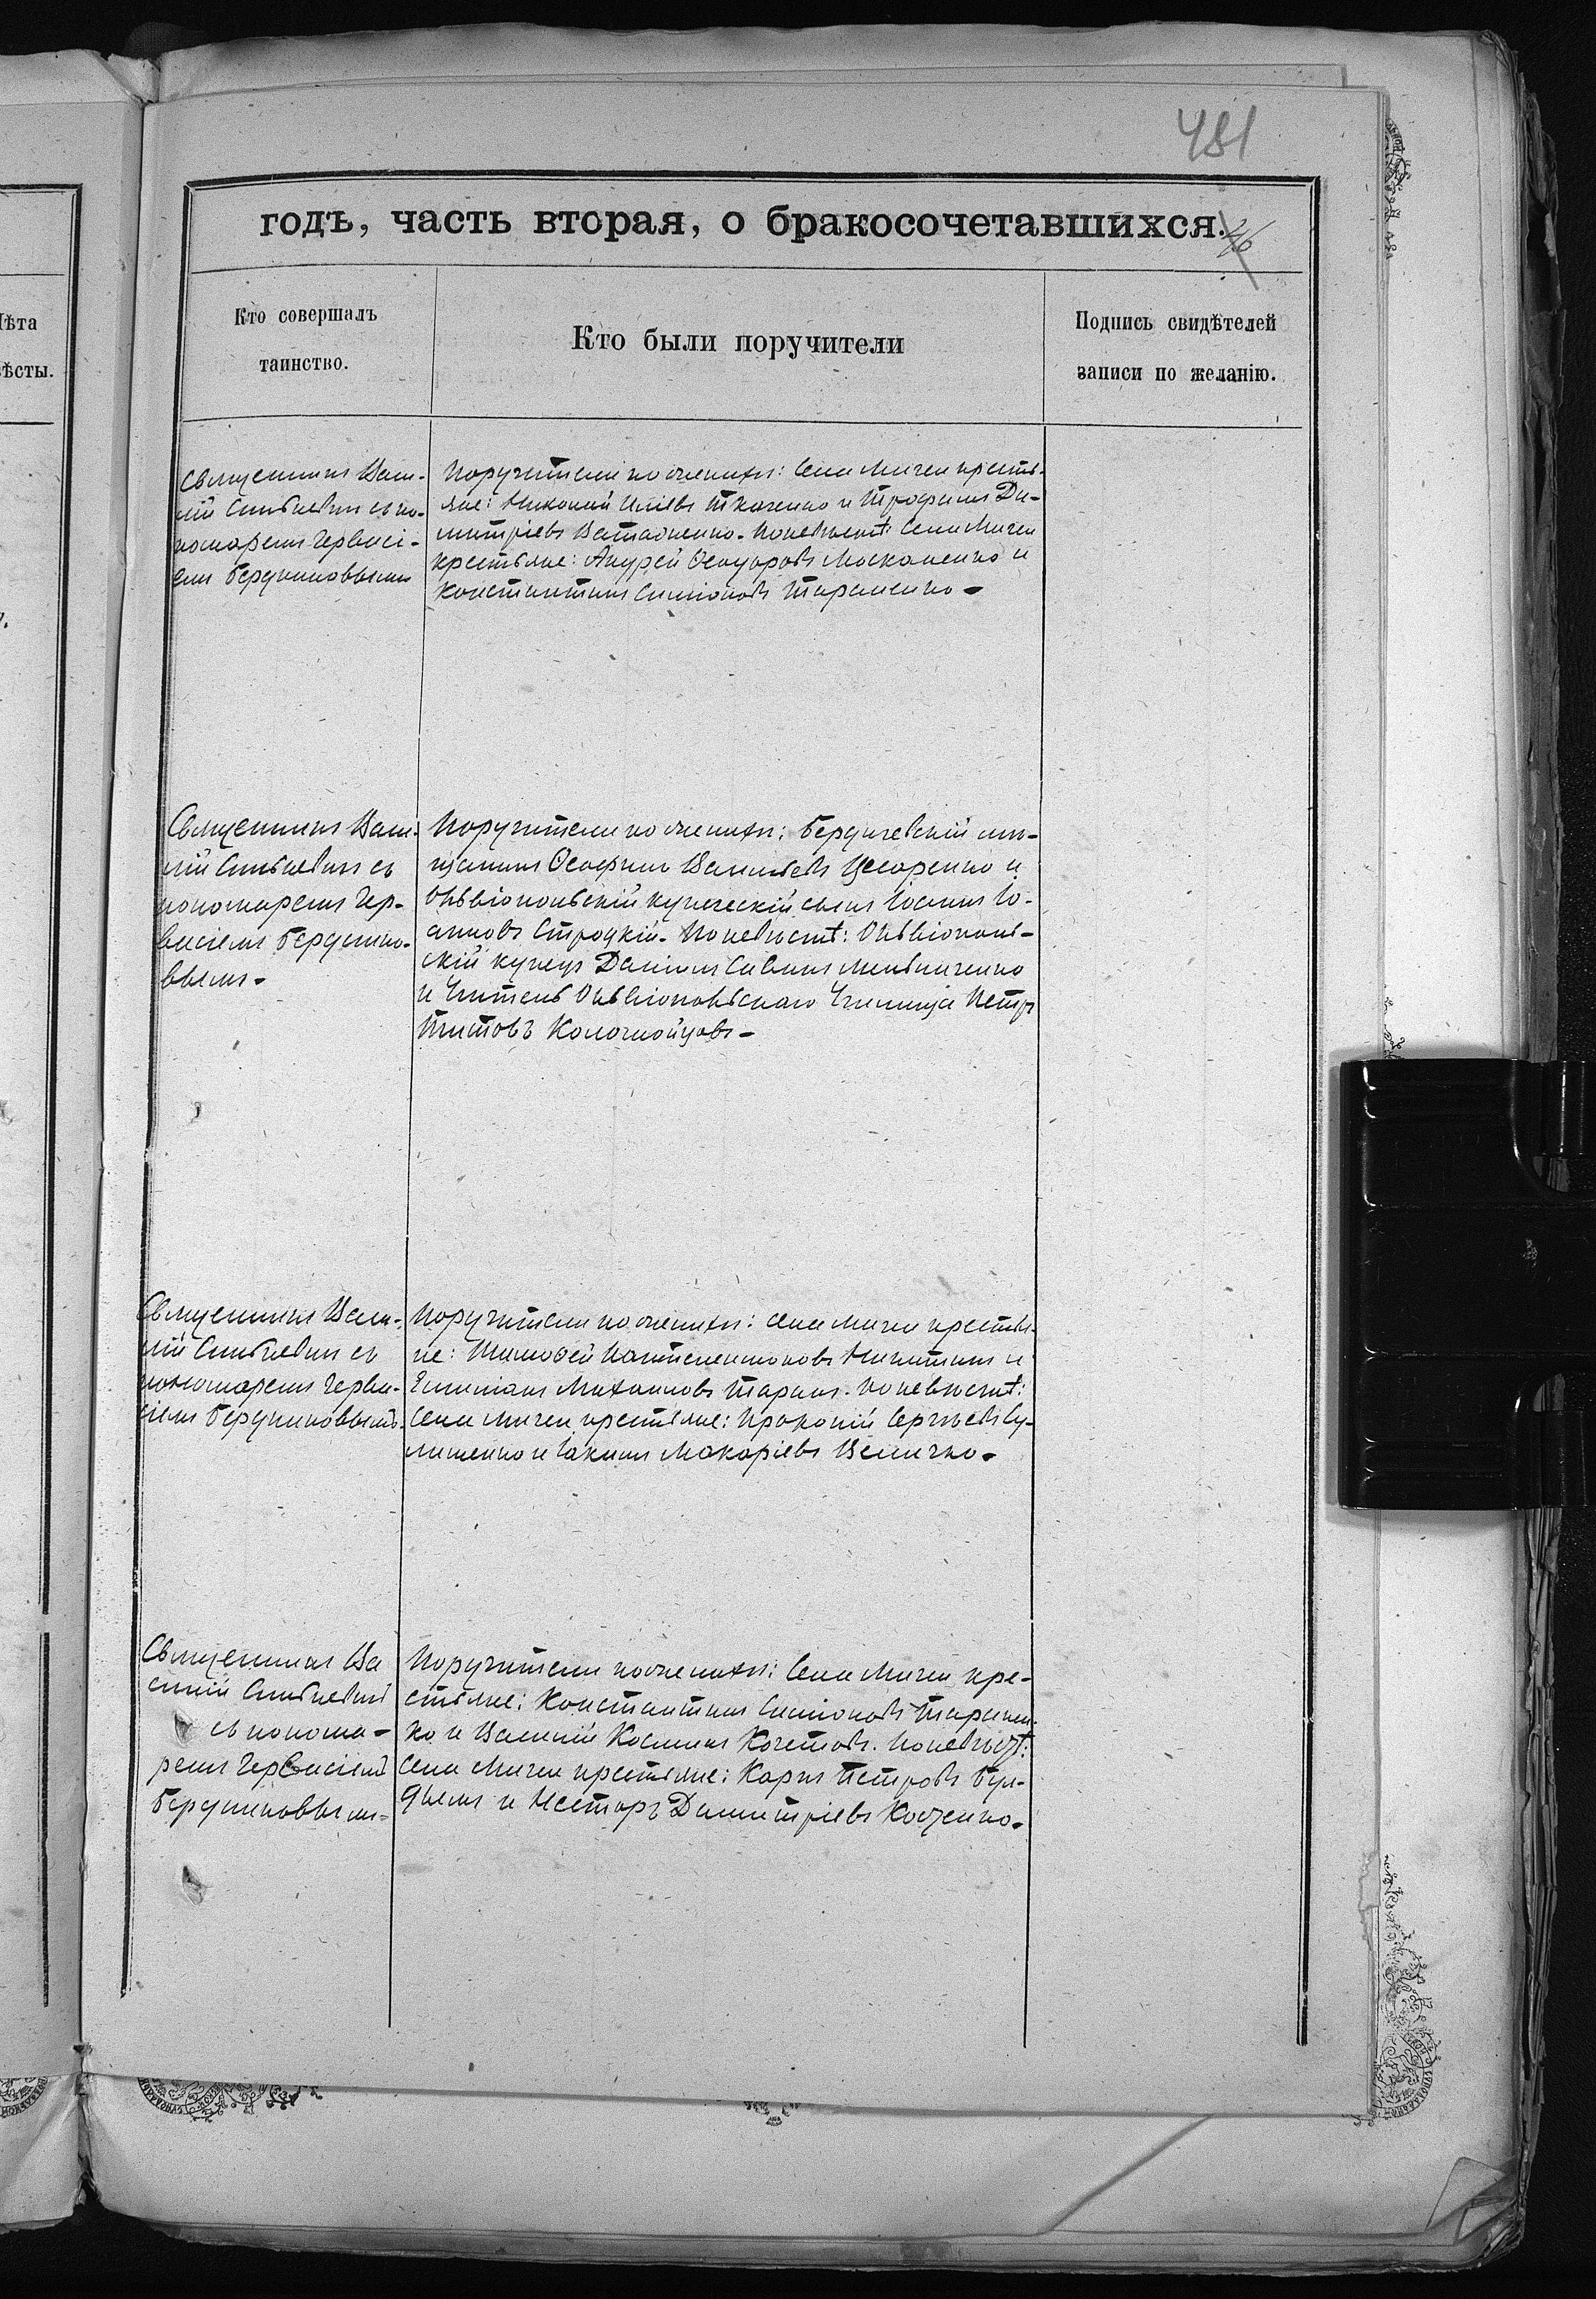 481
годъ, часть вторая, о бракосочетавшихся.
26
Кто совершалъ
таинство.
Кто были поручители
Подпись свидѣтелей
записи по желанію.
ѣсты.
Священникъ Васи-
лій Синькевичъ съ по-
номаремъ Гервасі-
емъ Бердниковымъ
Поручители по женихѣ: села Мигеи кресть-
яне: Николай Иліевъ Ткаченко и Трофимъ Ди-
митріевъ Ватаченко. По невѣстѣ: села Мигеи
крестьяне: Андрей Ѳеодоровъ Москаленко и
Константинъ Симіоновъ Тараненко.
Священникъ Васи-
лій Синькевичъ съ
пономаремъ Гер-
васіемъ Берднико-
вымъ.
Поручители по женихѣ: Бердичевскій мѣ-
щанинъ Ѳеофилъ Васильевъ Цесаренко и
Ольвіопольскій купеческій сынъ Іоаннъ Іо-
анновъ Строцкій. По невѣстѣ: Ольвіополь-
скій купецъ Даніилъ Саввинъ Мельниченко
и Учитель Ольвіопольскаго Училища Петръ
Титовъ Коломойцовъ.
Священникъ Васи-
лій Синькевичъ съ
пономаремъ Герва-
сіемъ Бердниковымъ.
Поручители по женихѣ: села Мигеи крестья-
не: Тимоѳей Пантелеимоновъ Никитинъ и
Емиліанъ Михаиловъ Таранъ. По невѣстѣ:
села Мигеи крестьяне: Прокопій Сергѣевъ Су-
лименко и Іакимъ Макаріевъ Величко.
Священникъ Ва
силій Синькевичъ
съ понома-
ремъ Гервасіемъ
Бердниковымъ.
Поручители по женихѣ: села Мигеи кре-
стьяне: Константинъ Симіоновъ Таранен-
ко и Василій Косминъ Кочетовъ. По невѣстѣ:
села Мигеи крестьяне: Карпъ Петровъ
и Несторъ Димитріевъ Косенко.